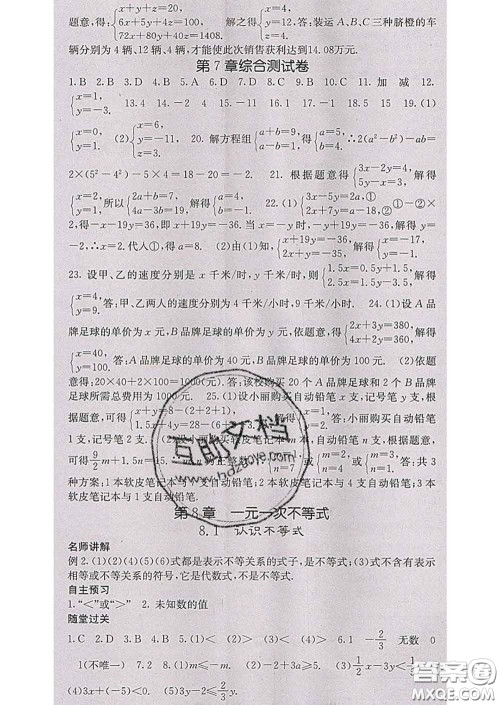 题意,得:{x+y+z=20, 6x+5y+4z=100, 72x+80y+40z=1408. 解之得{x=4, y=12, z=4. 答:装运A、B、C三种脐橙的车
辆分别为4辆、12辆、4辆,才能使此次销售获利达到14.08万元.
第7章综合测试卷
1.B 2.D 3.D 4.B 5.C 6.B 7.D 8.B 9.D 10.C 11.加 减 12.
{x=1, y=-3. 13.4 14.-2 4 15.-11 16.1 17.-1 18.5 15 19.(1)
{x=0, y=1. (2){x=6, y=-11, z=3. 20.解方程组{a+b=9, a-b=1. 得{a=5, b=4. ∴2(a²-b²)-ab=
2×(5²-4²)-5×4=18-20=-2. 21.根据题意得{3x-2y=4, 5y-x=3,解得
{x=2, y=1. 所以{2a+b=7, 4a-3b=19,解得{a=4, b=-1. 22.(1){x-5y=2a,① x+4y=-16. ②①-②×
2,得-x-19y=36,即x+19y=-36.当x=-y时,-y+19y=-36,解得y=
-2,∴x=2.代人①,得a=8. (2)由(1)知,{x+19y=-36, x+4y=-16.解得{x=-17, y=-1.
23.设甲、乙的速度分别是x千米/时,y千米/时,则{1.5x=0.5y+1.5, 2.5x=y+1. 解得
{x=4, y=9. 答:甲、乙两人的速度分别为4千米/小时,9千米/小时. 24.(1)设A品
牌足球的单价为x元,B品牌足球的单价为y元,依题意,得{2x+3y=380, 4x+2y=360,解得
{x=40, y=100. 答:A品牌足球的单价为40元,B品牌足球的单价为100元. (2)依题
意得:20×40+2×100=1000(元).答:该校购买20个A品牌足球和2个B品牌
足球所需总费用为1000元. 25.(1)设小丽购买自动铅笔x支,记号笔y支,根
支,记号笔2支. 本,自动铅笔n支,根据
题意,可得 9/2 m+1.5n=15. {m=1, n=7 或{m=2, n=4; 或{m=3, n=1. 答:共3
种方案:1本软皮笔记本与7支自动铅笔;2本软皮笔记本与4支自动铅笔;3本
软皮笔记本与1支自动铅笔.
互助文档
www.hdzoye.com
第8章 一元一次不等式
8.1 认识不等式
名师讲解
例2.(1)(2)(4)(5)(6)式都是表示不等关系的式子,是不等式;(3)式不含有表示
相等或不等关系的符号,它是代数式,不是不等式.
自主预习
1.“<”或“>” 2.未知数的值
随堂过关
1.C 2.D 3.B 4.A 5.(1)< (2)> (3)< (4)> 6.1 -2/3 无数 0
1(不唯一) 7.2 8.(1)m≤-m. (2)-2+3a≥5. (3)1/2 x-3y<
(4)3x+(-5)<0. (5)-2y≤2/3 y.
答案圈
MXQE.COM